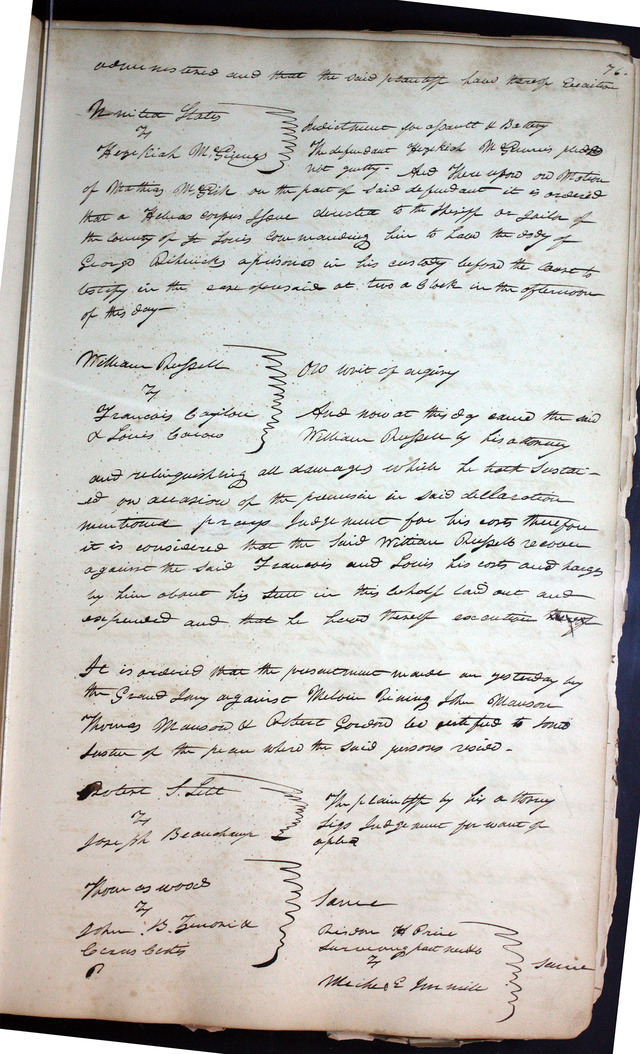 76.
administered and that the said plaintiff have thereof Execution
United States
vs
Hezekiah McGinnis
Indictment for assault & Battery
The defendant Hezekiah McGinnis pleads
not guilty - And There upon on Motion
of Mathias McGirk on the part of said defendant it is ordered
that a Habeas corpus Issue directed to the Sheriff or Jailor of
the County of St Louis Commanding him to have the body of
George a prisoner in his custody before the Court to
testify in the case aforesaid at two o Clock in the afternoon
of this day -
William Russell
vs
Francois
& Louis
On writ of enquiry
And now at this day came the said
William Russell by his attorney
and relinquishing all damages which he hath Sustain-
ed on occasion of the premises in said declaration
mentioned prays Judgement for his costs therefore
it is considered that the Said William Russell recover
against the said Francois and Louis his costs and charges
by him about his Suit in this behalf laid out and
expended and that he have thereof execution
It is ordered that the presentment made on yesterday by
the Grand Jury against Melvin John Manson
Thomas Manson & Robert Gordon be certified to some
Justice of the peace where the said persons reside -
Robert S.
vs
Joseph Beauchamp
The plaintiff by his attorney
Sigs Judgement for want of
a plea
Thomas wood
vs
John B.
Same
Risdon H Price
Surviving partner &c
vs
Same